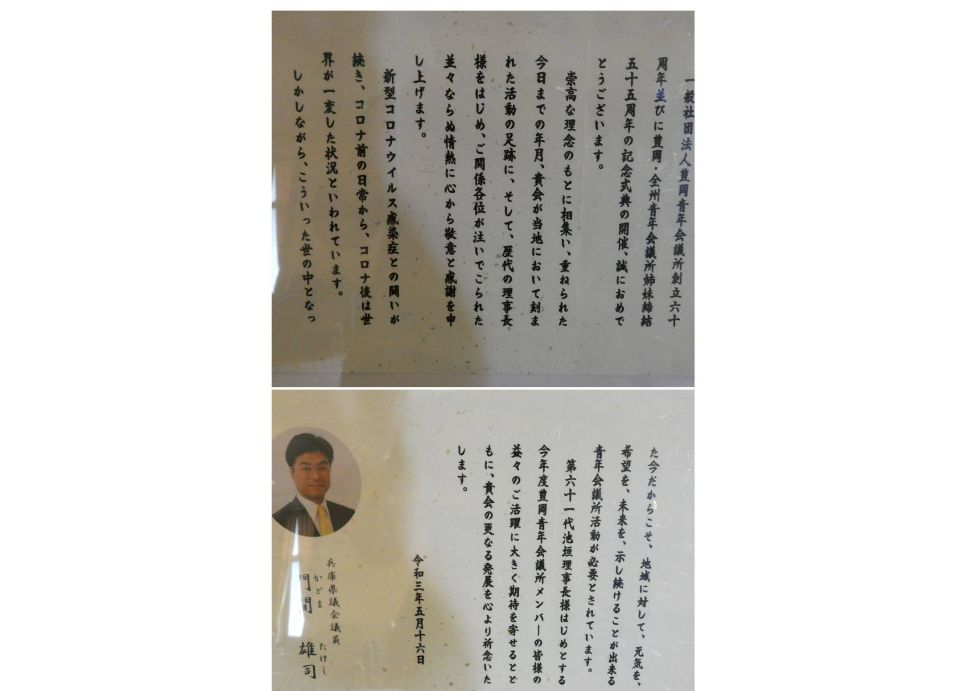 一般社団法人豊岡青年会議所創立六十
周年並びに豊岡・全州青年会議所姉妹締結
五十五周年の記念式典の開催、誠におめで
とうございます。
崇高な理念のもとに相集い、重ねられた
今日までの年月、貴会が当地において刻ま
れた活動の足跡に、そして、歴代の理事長
様をはじめ、ご関係各位が注いでこられた
並々ならぬ情熱に心から敬意と感謝を申
し上げます。
新型コロナウイルス感染症との闘いが
続き、コロナ前の日常から、コロナ後は世
界が一変した状況といわれています。
しかしながら、こういった世の中となっ
た今だからこそ、地域に対して、元気を、
希望を、未来を、示し続けることが出来る
青年会議所活動が必要とされています。
第六十一代池垣理事長様はじめとする
今年度豊岡青年会議所メンバーの皆様の
益々のご活躍に大きく期待を寄せるとと
もに、貴会の更なる発展を心より祈念いた
します。
令和三年五月十六日
兵庫県議会議員
かどま たけし
門間 雄司